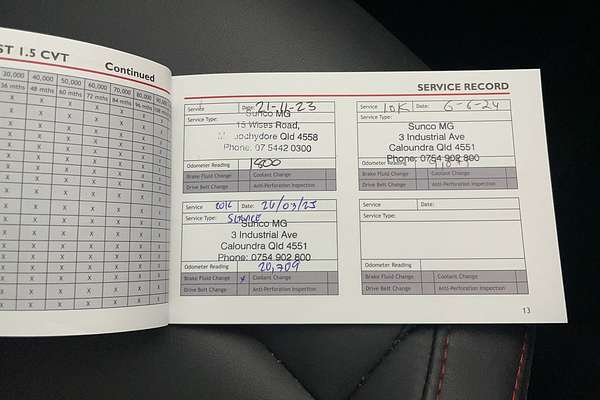 ST 1.5 CVT
Continued
30,000 40,000 50,000 60,000 70,000 80,000 90,000
36 mths 48 mths 60 mths 72 mths 84 mths 96 mths
SERVICE RECORD
Service Date: 21-11-23
Service Type: Sunco MG
13 Wises Road,
Maroochydore Qld 4558
Phone: 07 5442 0300
Odometer Reading 1400
Brake Fluid Change Coolant Change
Drive Belt Change Anti-Perforation Inspection
Service 10K Date: 6-6-24
Service Type:
Sunco MG
3 Industrial Ave
Caloundra Qld 4551
Phone: 0754 902 800
Odometer Reading
Brake Fluid Change Coolant Change
Drive Belt Change Anti-Perforation Inspection
Service 20K Date: 24/03/25
Service Type: SERVICE
Sunco MG
3 Industrial Ave
Caloundra Qld 4551
Phone: 0754 902 800
Odometer Reading 20,709
Brake Fluid Change x Coolant Change
Drive Belt Change Anti-Perforation Inspection
Service Date:
Service Type:
Odometer Reading
Brake Fluid Change Coolant Change
Drive Belt Change Anti-Perforation Inspection
13